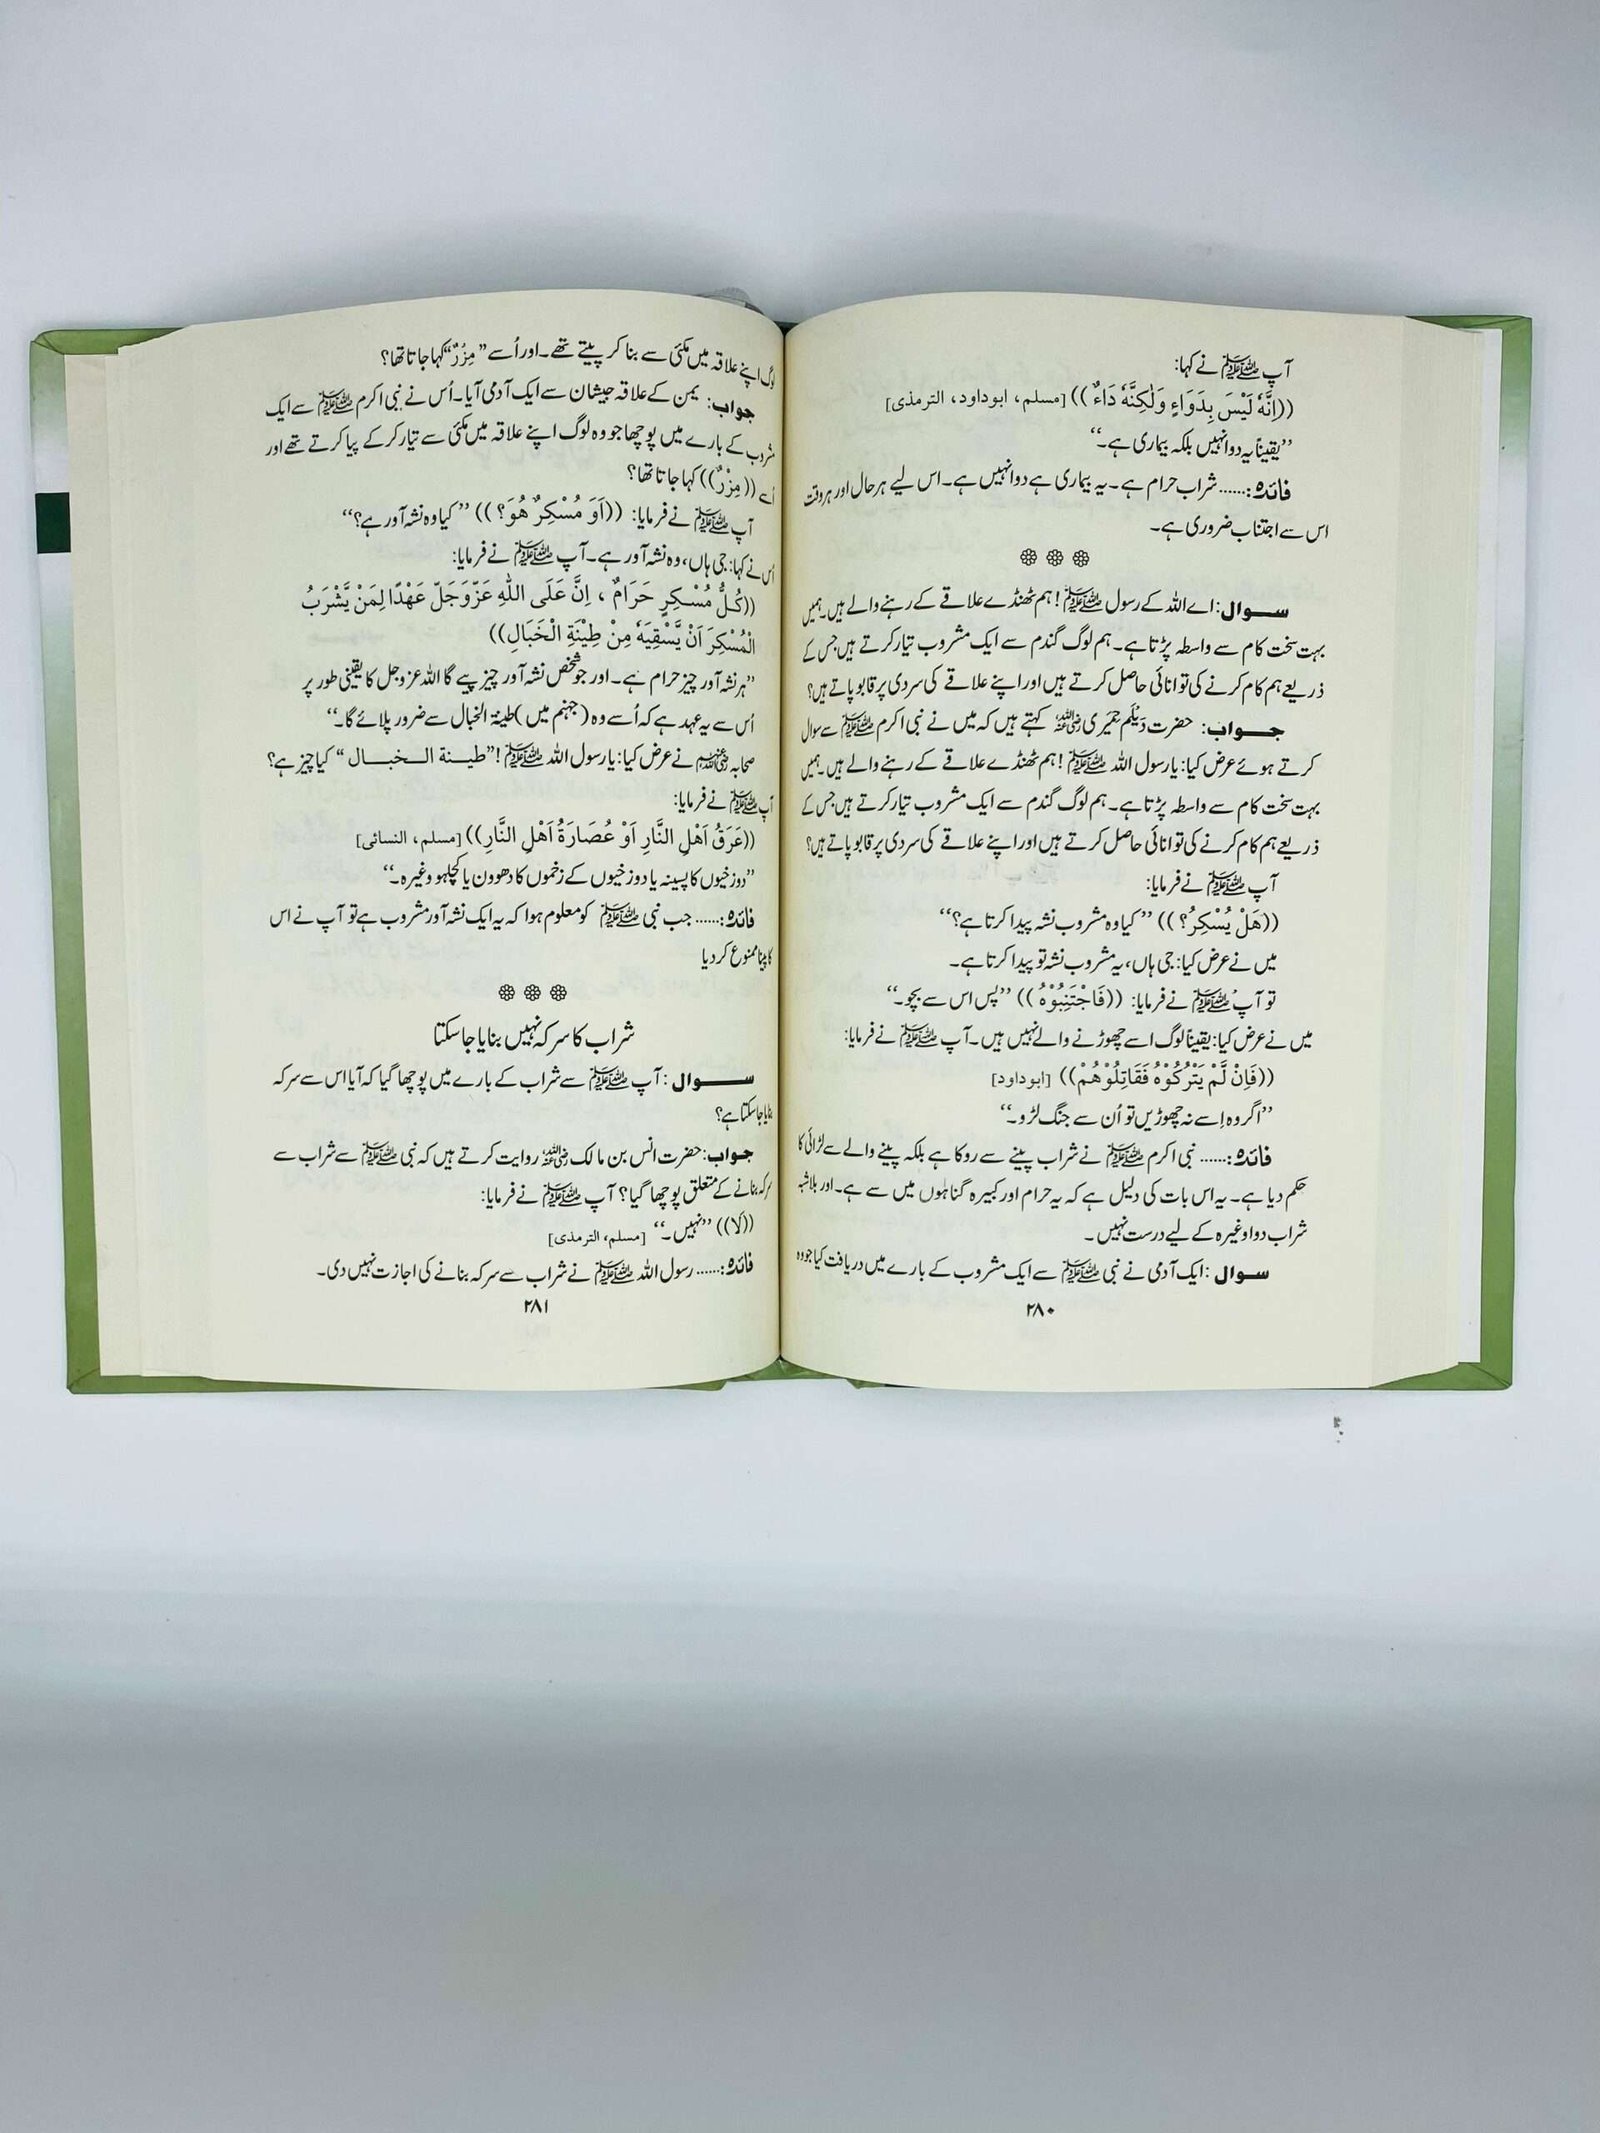 آپ ﷺ نے کہا:
((اِنَّهٗ لَيْسَ بِدَوَاءٍ وَلٰكِنَّهٗ دَاءٌ)) [مسلم، ابوداود، الترمذی]
”یقیناً یہ دوا نہیں بلکہ بیماری ہے۔“
فائدہ:...... شراب حرام ہے۔ یہ بیماری ہے دوا نہیں ہے۔ اس لیے ہر حال اور ہر وقت
اس سے اجتناب ضروری ہے۔
سوال: اے اللہ کے رسول ﷺ! ہم ٹھنڈے علاقے کے رہنے والے ہیں۔ ہمیں
بہت سخت کام سے واسطہ پڑتا ہے۔ ہم لوگ گندم سے ایک مشروب تیار کرتے ہیں جس کے
ذریعے ہم کام کرنے کی توانائی حاصل کرتے ہیں اور اپنے علاقے کی سردی پر قابو پاتے ہیں؟
جواب: حضرت دَیْلَم حِمْیَری رضی اللہ عنہ کہتے ہیں کہ میں نے نبی اکرم ﷺ سے سوال
کرتے ہوئے عرض کیا: یا رسول اللہ ﷺ! ہم ٹھنڈے علاقے کے رہنے والے ہیں۔ ہمیں
بہت سخت کام سے واسطہ پڑتا ہے۔ ہم لوگ گندم سے ایک مشروب تیار کرتے ہیں جس کے
ذریعے ہم کام کرنے کی توانائی حاصل کرتے ہیں اور اپنے علاقے کی سردی پر قابو پاتے ہیں؟
آپ ﷺ نے فرمایا:
((هَلْ يُسْكِرُ؟)) ”کیا وہ مشروب نشہ پیدا کرتا ہے؟“
میں نے عرض کیا: جی ہاں، یہ مشروب نشہ تو پیدا کرتا ہے۔
تو آپ ﷺ نے فرمایا: ((فَاجْتَنِبُوْهُ)) ”پس اس سے بچو۔“
میں نے عرض کیا: یقیناً لوگ اسے چھوڑنے والے نہیں ہیں۔ آپ ﷺ نے فرمایا:
((فَاِنْ لَّمْ يَتْرُكُوْهُ فَقَاتِلُوْهُمْ)) [ابوداود]
”اگر وہ اِسے نہ چھوڑیں تو اُن سے جنگ لڑو۔“
فائدہ:...... نبی اکرم ﷺ نے شراب پینے سے روکا ہے بلکہ پینے والے سے لڑائی کا
حکم دیا ہے۔ یہ اس بات کی دلیل ہے کہ یہ حرام اور کبیرہ گناہوں میں سے ہے۔ اور بلاشبہ
شراب دوا وغیرہ کے لیے درست نہیں۔
سوال: ایک آدمی نے نبی ﷺ سے ایک مشروب کے بارے میں دریافت کیا جو وہ
۲۸۰
لوگ اپنے علاقہ میں مکئی سے بنا کر پیتے تھے۔ اور اُسے ”مِزْرٌ“ کہا جاتا تھا؟
جواب: یمن کے علاقہ جیشان سے ایک آدمی آیا۔ اُس نے نبی اکرم ﷺ سے ایک
مشروب کے بارے میں پوچھا جو وہ لوگ اپنے علاقہ میں مکئی سے تیار کر کے پیا کرتے تھے اور
اُسے ((مِزْرٌ)) کہا جاتا تھا؟
آپ ﷺ نے فرمایا: ((اَوَ مُسْكِرٌ هُوَ؟)) ”کیا وہ نشہ آور ہے؟“
اُس نے کہا: جی ہاں، وہ نشہ آور ہے۔ آپ ﷺ نے فرمایا:
((كُلُّ مُسْكِرٍ حَرَامٌ ، اِنَّ عَلَى اللّٰهِ عَزَّوَجَلَّ عَهْدًا لِمَنْ يَّشْرَبُ
الْمُسْكِرَ اَنْ يَّسْقِيَهٗ مِنْ طِيْنَةِ الْخَبَالِ))
”ہر نشہ آور چیز حرام ہے۔ اور جو شخص نشہ آور چیز پیے گا اللہ عزوجل کا یقینی طور پر
اُس سے یہ عہد ہے کہ اُسے وہ (جہنم میں) طینۃ الخبال سے ضرور پلائے گا۔“
صحابہ رضی اللہ عنہم نے عرض کیا: یا رسول اللہ ﷺ! ”طینۃ الخبال“ کیا چیز ہے؟
آپ ﷺ نے فرمایا:
((عَرَقُ اَهْلِ النَّارِ اَوْ عُصَارَةُ اَهْلِ النَّارِ)) [مسلم، النسائی]
”دوزخیوں کا پسینہ یا دوزخیوں کے زخموں کا دھوون یا کچلہو وغیرہ۔“
فائدہ:...... جب نبی ﷺ کو معلوم ہوا کہ یہ ایک نشہ آور مشروب ہے تو آپ نے اس
کا پینا ممنوع کر دیا
شراب کا سرکہ نہیں بنایا جا سکتا
سوال: آپ ﷺ سے شراب کے بارے میں پوچھا گیا کہ آیا اس سے سرکہ
بنایا جا سکتا ہے؟
جواب: حضرت انس بن مالک رضی اللہ عنہ روایت کرتے ہیں کہ نبی ﷺ سے شراب سے
سرکہ بنانے کے متعلق پوچھا گیا؟ آپ ﷺ نے فرمایا:
((لَا)) ”نہیں۔“ [مسلم، الترمذی]
فائدہ:...... رسول اللہ ﷺ نے شراب سے سرکہ بنانے کی اجازت نہیں دی۔
۲۸۱